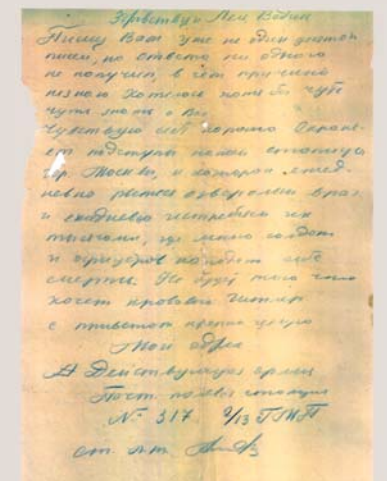 Здравствуй
Пишу Вам уже не один десяток
писем, но ответа ни одного
не получил, в чем причина
незнаю хотелось хотя бы чуть
чуть знать о Вас
Чувствую себя хорошо Охраня-
ем подступы нашей столицы
гор. Москвы, к которой ежед-
невно рвется озверелый враг
и ежедневно истребляем их
тысячами, где много солдат
и офицеров находят себе
смерть. Не будет того чего
хочет кровавый Гитлер
с приветом крепко целую
Мой адрес
Действующая армия
Почт. полевая станция
№ 317